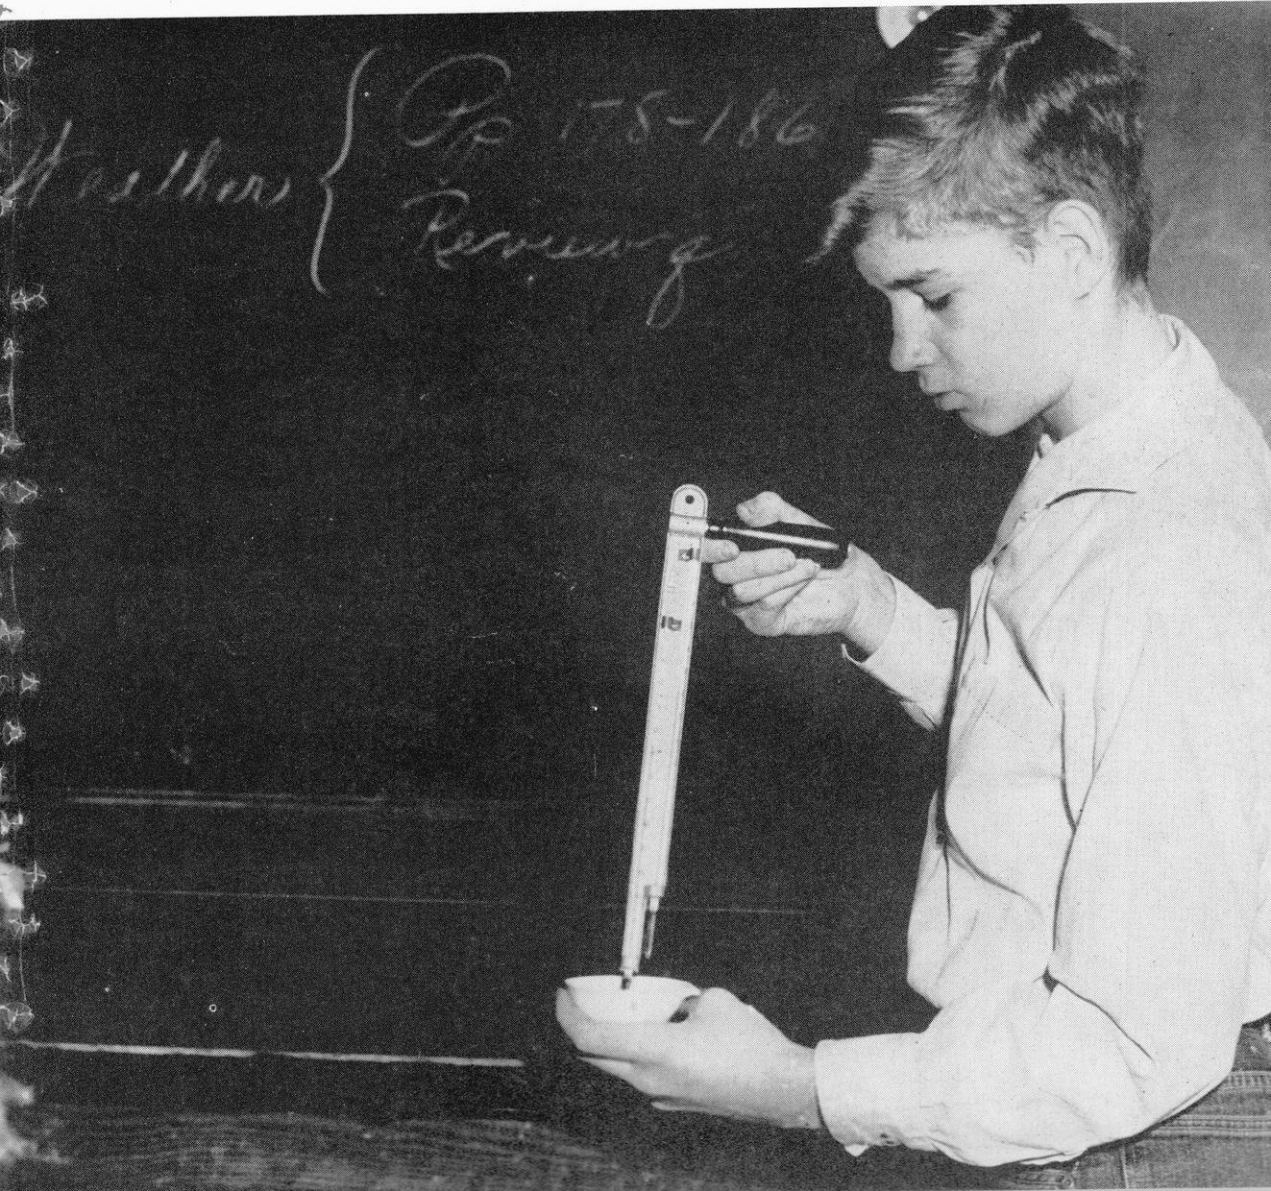 Weather
Pp 158-186
Reviewing